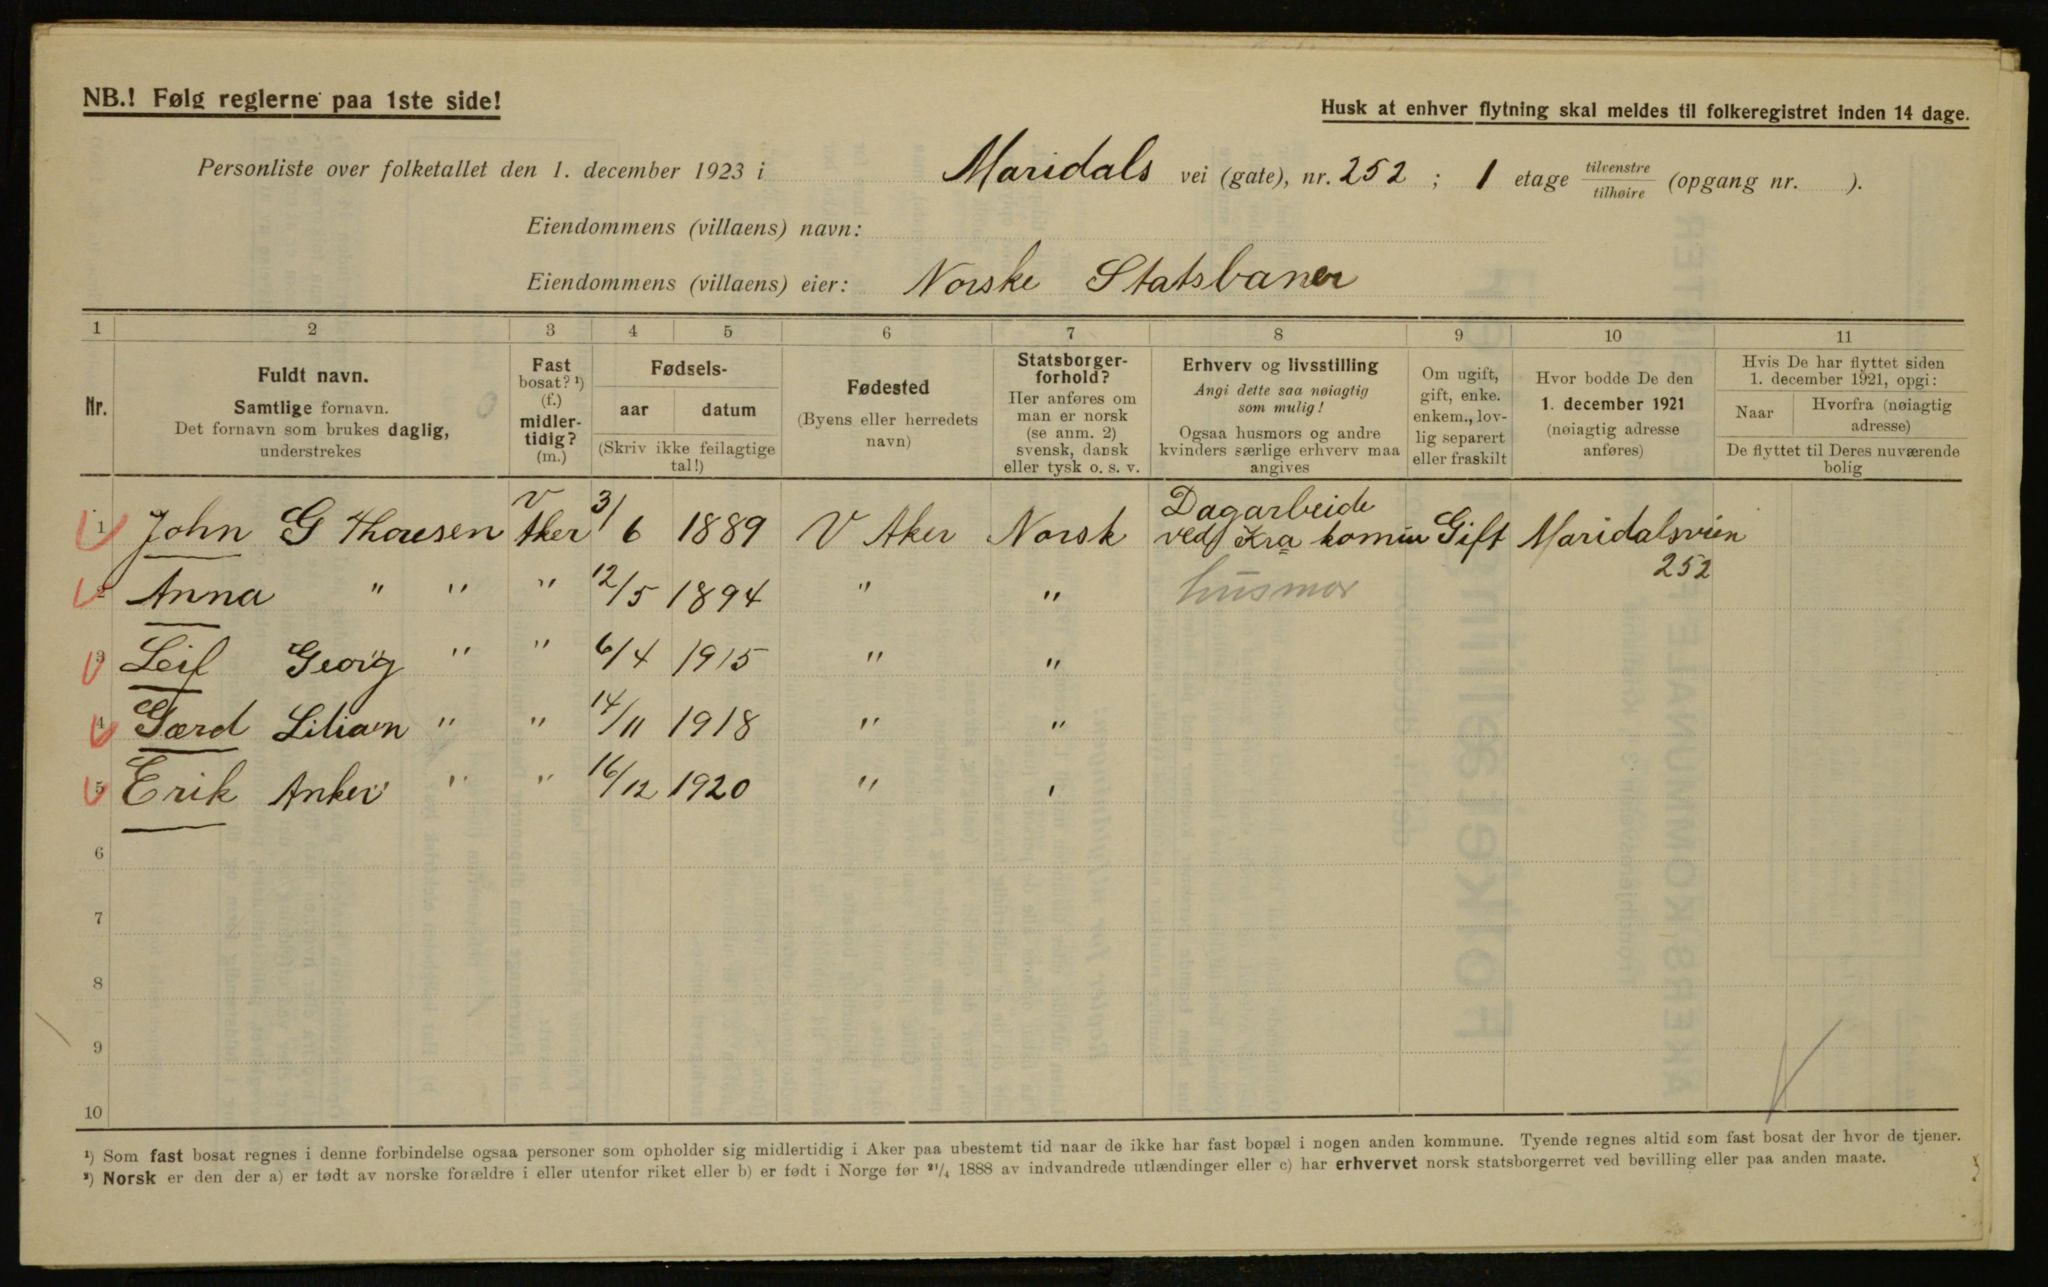 NB.! Følg reglerne paa 1ste side!
Husk at enhver flytning skal meldes til folkeregistret inden 14 dage.
Personliste over folketallet den 1. december 1923 i Maridals vei (gate), nr. 252 ; 1 etage tilvenstre tilhøire (opgang nr. ).
Eiendommens (villaens) navn:
Eiendommens (villaens) eier: Norske Statsbaner
1 2 3 4 5 6 7 8 9 10 11
Nr.
Fuldt navn.
Samtlige fornavn.
Det fornavn som brukes daglig,
understrekes
Fast
bosat? ¹)
(f.)
midler-
tidig?
(m.)
Fødsels-
aar datum
(Skriv ikke feilagtige
tal!)
Fødested
(Byens eller herredets
navn)
Statsborger-
forhold?
Her anføres om
man er norsk
(se anm. 2)
svensk, dansk
eller tysk o. s. v.
Erhverv og livsstilling
Angi dette saa nøiagtig
som mulig!
Ogsaa husmors og andre
kvinders særlige erhverv maa
angives
Om ugift,
gift, enke.
enkem., lov-
lig separert
eller fraskilt
Hvor bodde De den
1. december 1921
(nøiagtig adresse
anføres)
Hvis De har flyttet siden
1. december 1921, opgi:
Naar
Hvorfra (nøiagtig
adresse)
De flyttet til Deres nuværende
bolig
1 John G Thoresen V Aker 3/6 1889 V Aker Norsk Dagarbeide ved Kra komun Gift Maridalsveien 252
2 Anna " " " 12/5 1894 " " husmor
3 Leif Georg " " 6/4 1915 " "
4 Gærd Liliam " " 14/11 1918 " "
5 Erik Anker " " 16/12 1920 " "
6
7
8
9
10
¹) Som fast bosat regnes i denne forbindelse ogsaa personer som opholder sig midlertidig i Aker paa ubestemt tid naar de ikke har fast bopæl i nogen anden kommune. Tyende regnes altid som fast bosat der hvor de tjener.
²) Norsk er den der a) er født av norske forældre i eller utenfor riket eller b) er født i Norge før ²¹/₄ 1888 av indvandrede utlændinger eller c) har erhvervet norsk statsborgerret ved bevilling eller paa anden maate.